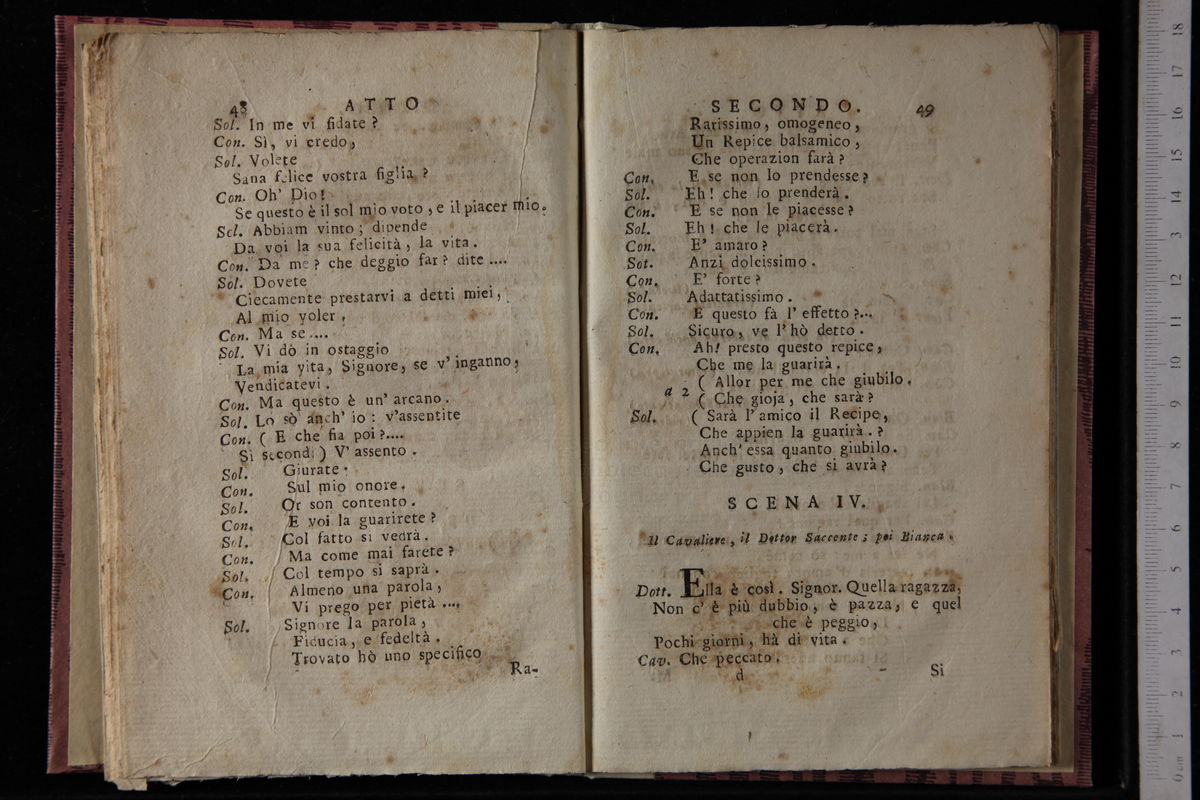 48 ATTO
Sol. In me vi fidate ?
Con. Sì, vi credo,
Sol. Volete
Sana felice vostra figlia ?
Con. Oh' Dio!
Se questo è il sol mio voto, e il piacer mio.
Sol. Abbiam vinto; dipende
Da voi la sua felicità, la vita.
Con. Da me? che deggio far? dite ....
Sol. Dovete
Ciecamente prestarvi a detti miei,
Al mio voler.
Con. Ma se....
Sol. Vi dò in ostaggio
La mia vita, Signore, se v' inganno,
Vendicatevi.
Con. Ma questo è un' arcano.
Sol. Lo sò anch' io: v'assentite
Con. ( E che fia poi?....
Si secondi) V' assento.
Sol. Giurate.
Con. Sul mio onore.
Sol. Or son contento.
Con. E voi la guarirete?
Sol. Col fatto si vedrà.
Con. Ma come mai farete?
Sol. Col tempo si saprà.
Con. Almeno una parola,
Vi prego per pietà ....
Sol. Signore la parola,
Fiducia, e fedeltà.
Trovato hò uno specifico
Ra-
SECONDO. 49
Rarissimo, omogeneo,
Un Repice balsamico,
Che operazion farà?
Con. E se non lo prendesse?
Sol. Eh! che lo prenderà.
Con. E se non le piacesse?
Sol. Eh! che le piacerà.
Con. E' amaro?
Sot. Anzi dolcissimo.
Con. E' forte?
Sol. Adattatissimo.
Con. E questo fà l' effetto?...
Sol. Sicuro, ve l' hò detto.
Con. Ah! presto questo repice,
Che me la guarirà.
( Allor per me che giubilo.
a 2 ( Che gioja, che sarà?
Sol. ( Sarà l' amico il Recipe,
Che appien la guarirà.?
Anch' essa quanto giubilo.
Che gusto, che si avrà?
SCENA IV.
Il Cavaliere, il Dottor Saccente; poi Bianca.
Dott. Ella è così. Signor. Quella ragazza,
Non c' è più dubbio, è pazza, e quel
che è peggio,
Pochi giorni, hà di vita.
Cav. Che peccato.
d Si
18
17
16
15
14
13
12
11
10
9
8
7
6
5
4
3
2
1
0 cm